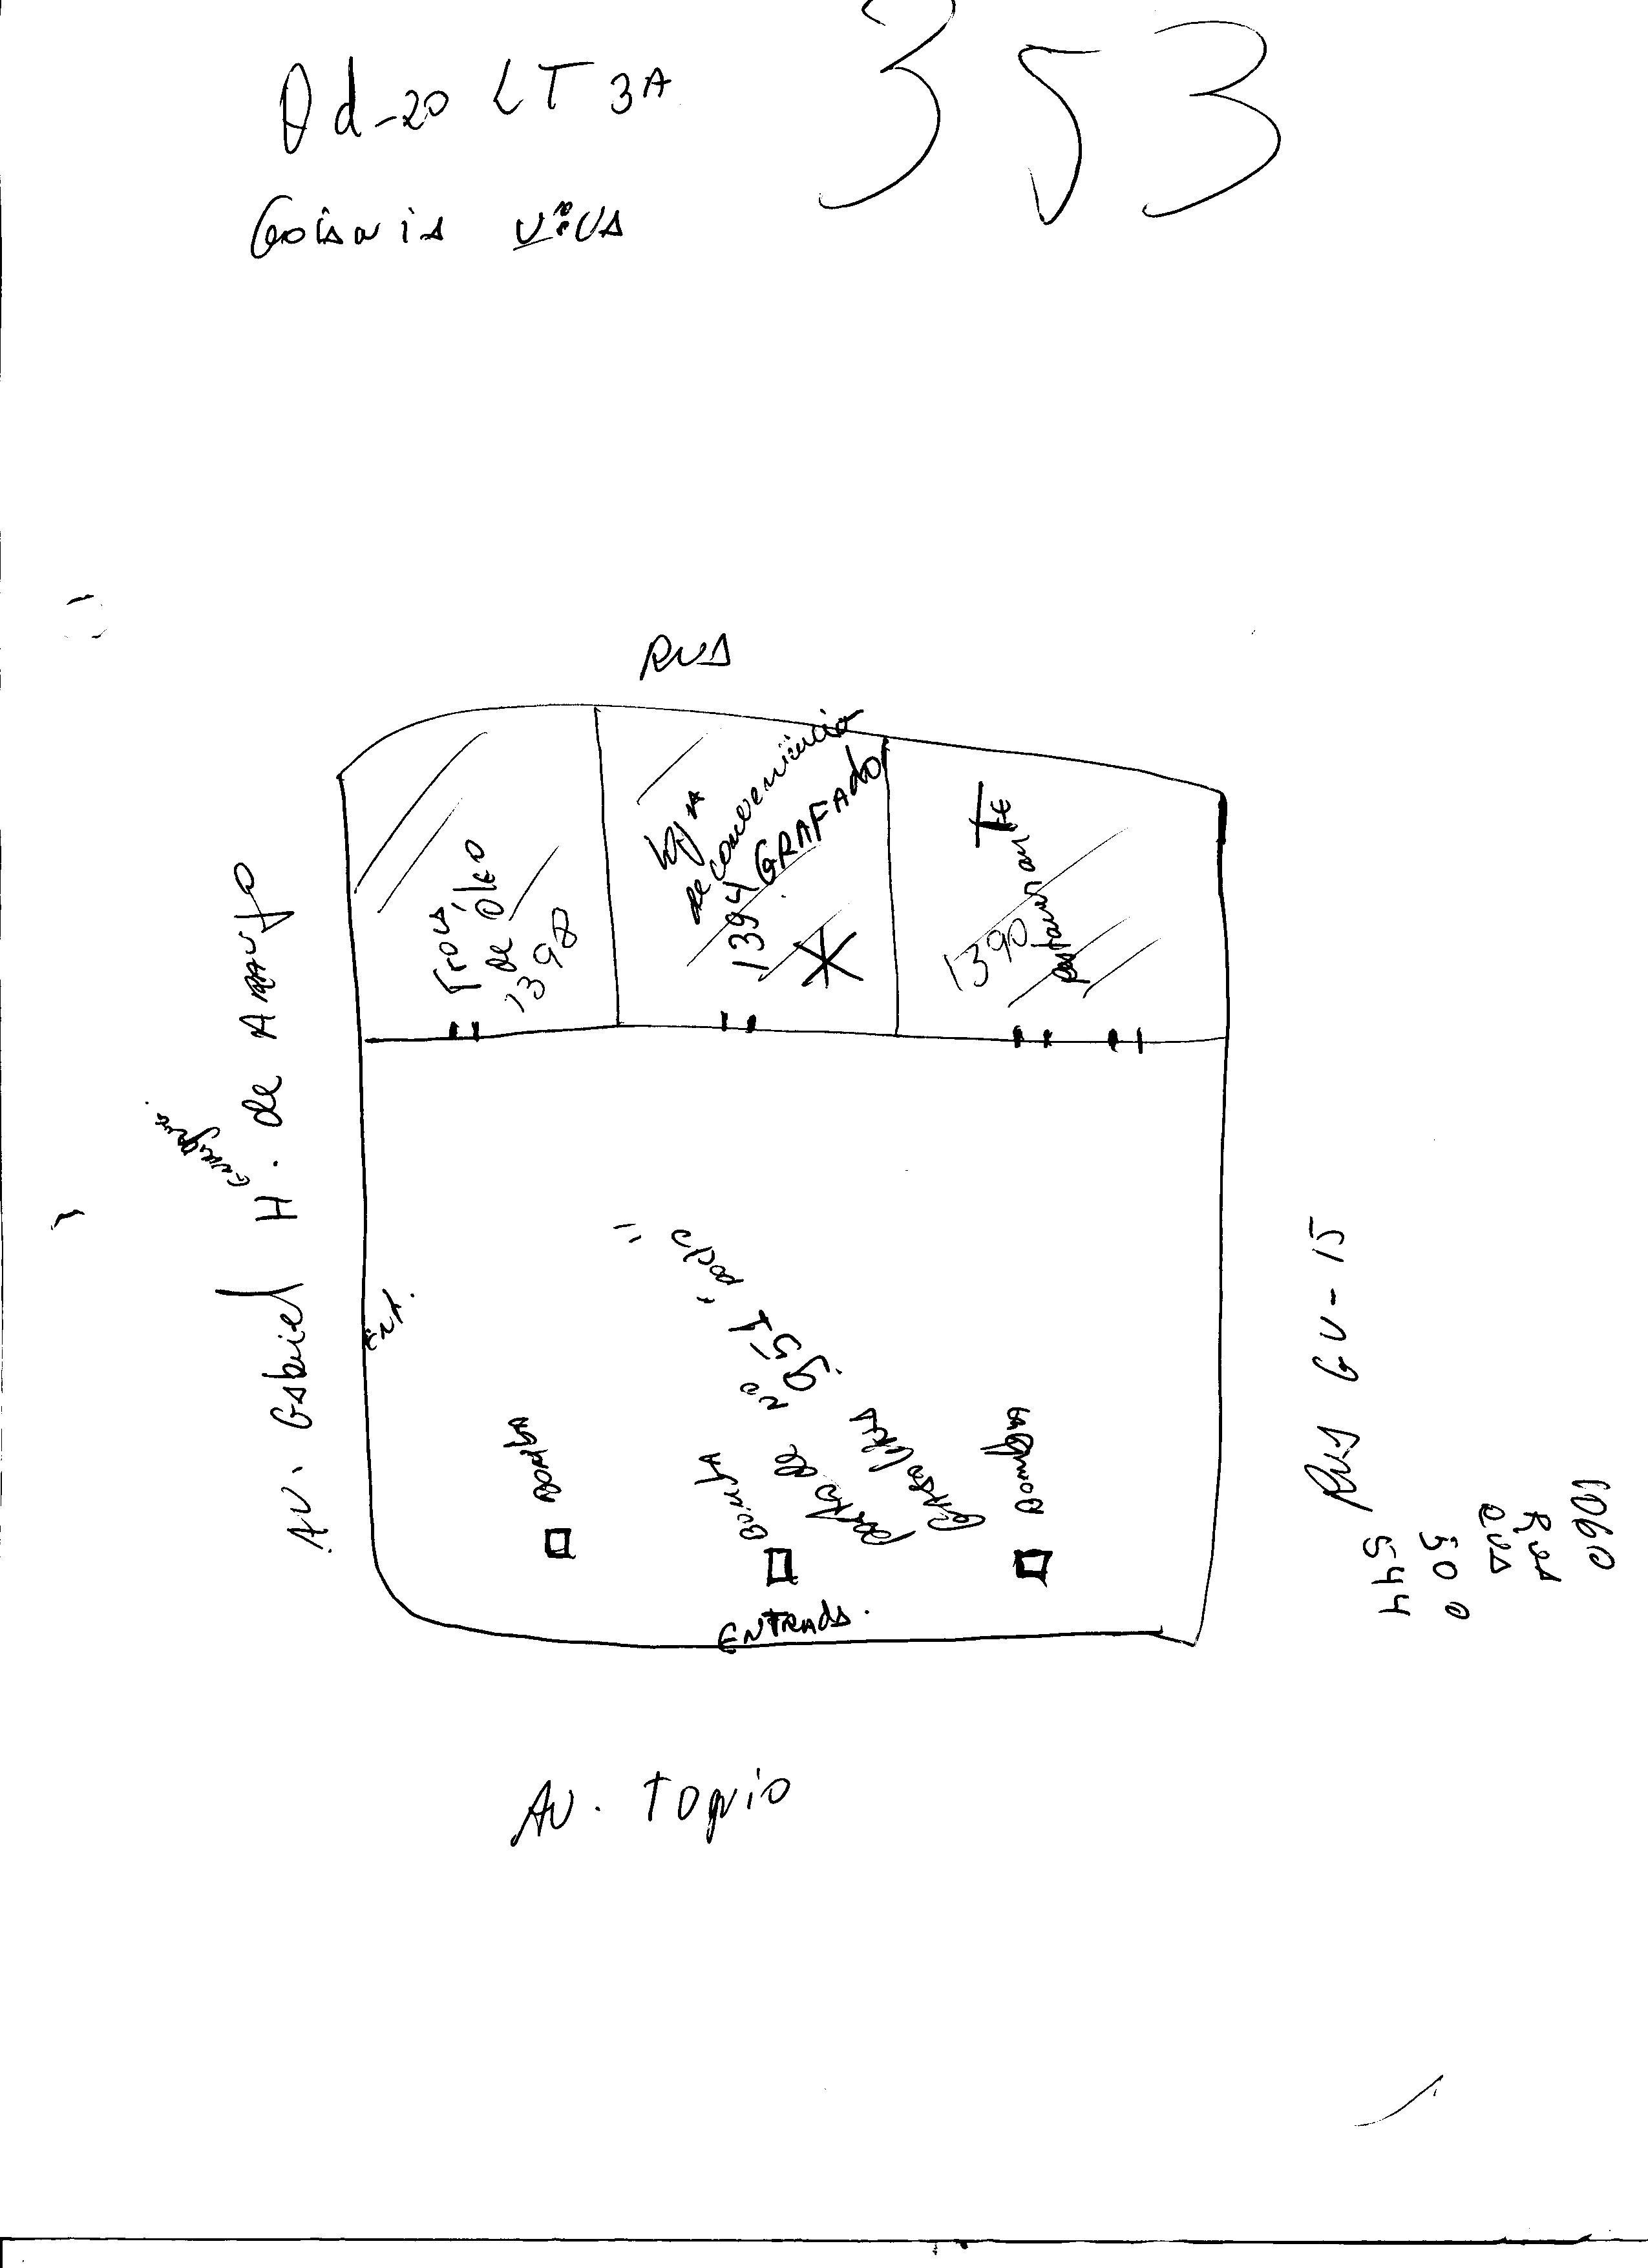 353
Qd-20 LT 3A
Goiania Viva
RUA
Troca
de óleo
1398
loja
de conveniência
1394 GRAFADO
1390
Restaurante
AV. Gabriel H. de Araujo
Ent.
Posto de
Gasolina
Bomba
Bomba
Bomba
ENTRADA.
Rua GV-15
544
500
Rua
1060
AV. Toquio